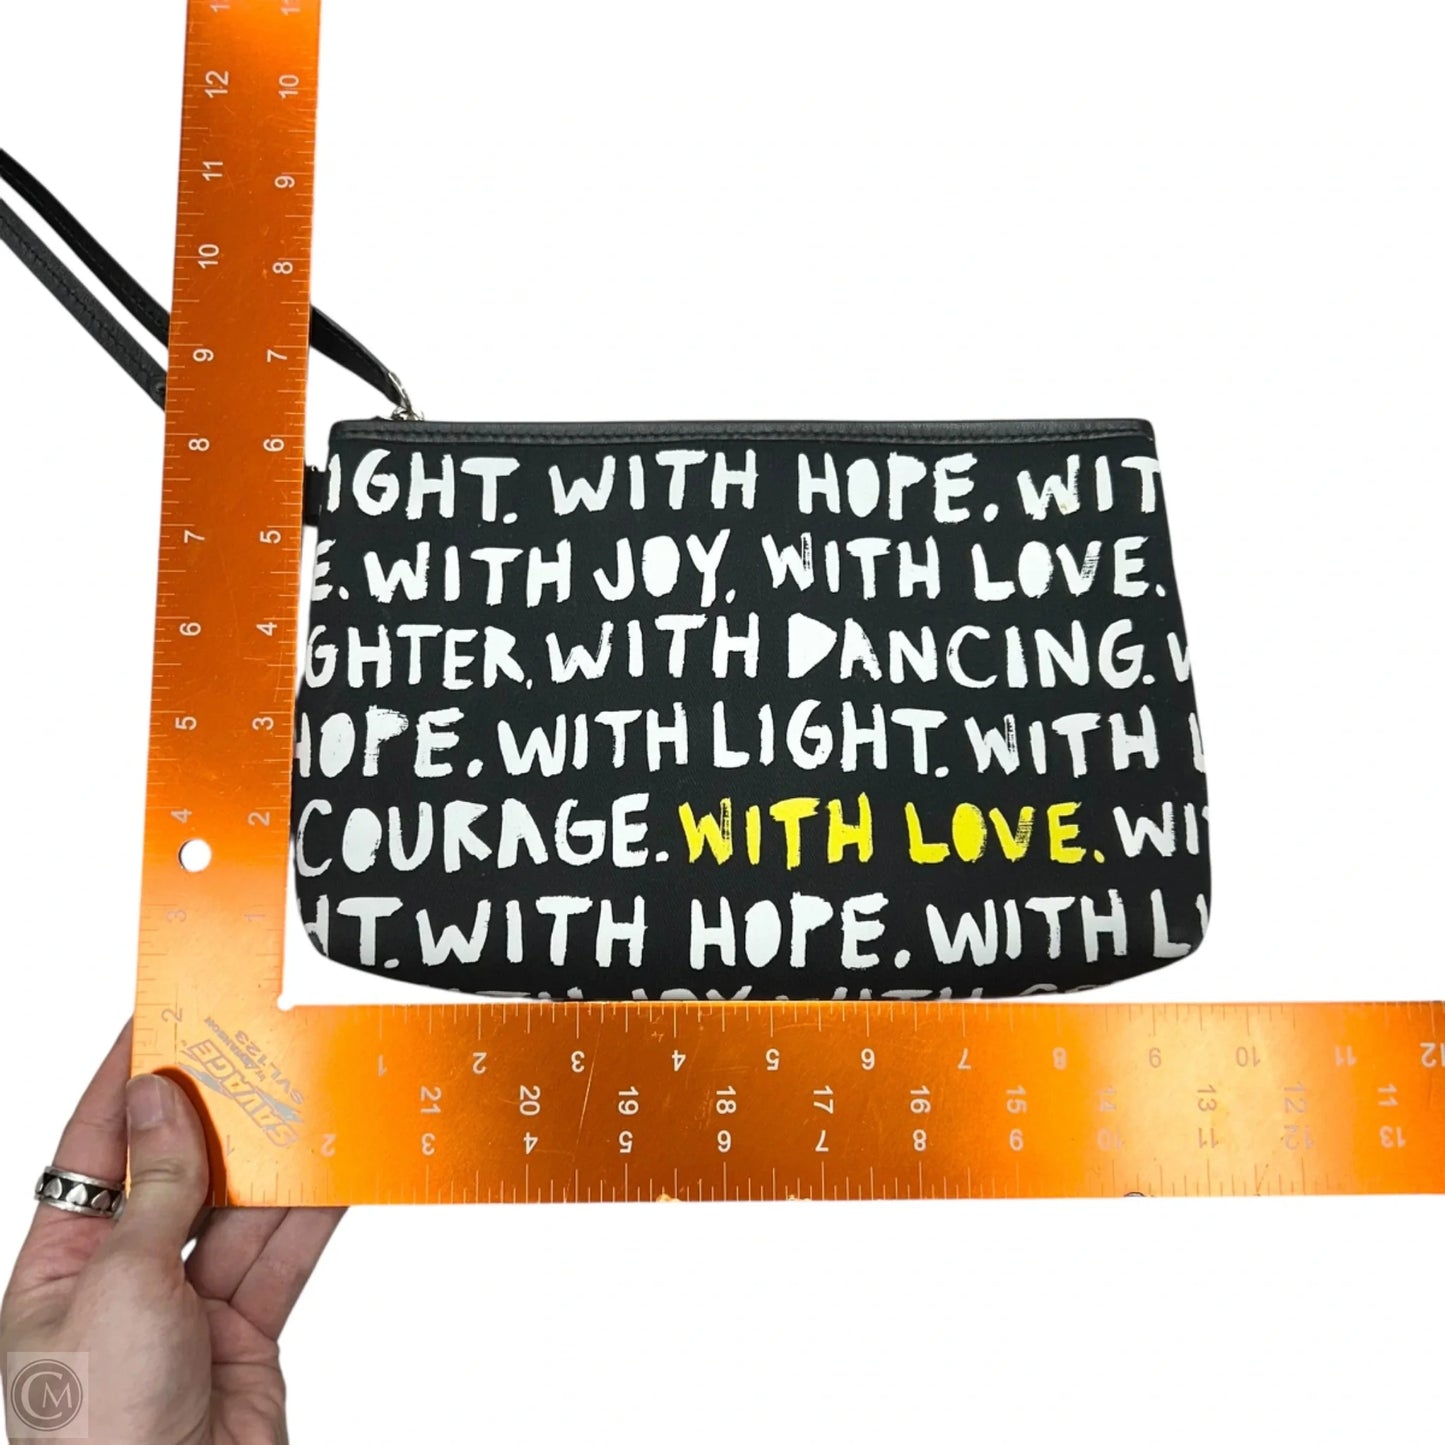 IGHT. WITH HOPE. WIT
E. WITH JOY. WITH LOVE.
GHTER. WITH DANCING. W
HOPE. WITH LIGHT. WITH L
COURAGE. WITH LOVE. WI
HT. WITH HOPE. WITH LI
WITH JOY. WITH
12 11 10 9 8 7 6 5 4 3 2 1
10 9 8 7 6 5 4 3 2 1
1 2 3 4 5 6 7 8 9 10 11 12
21 20 19 18 17 16 15 14 13 12 11
2 3 4 5 6 7 8 9 10 11 12 13
SAVAGE
BY SWANSON
SVL123
CM